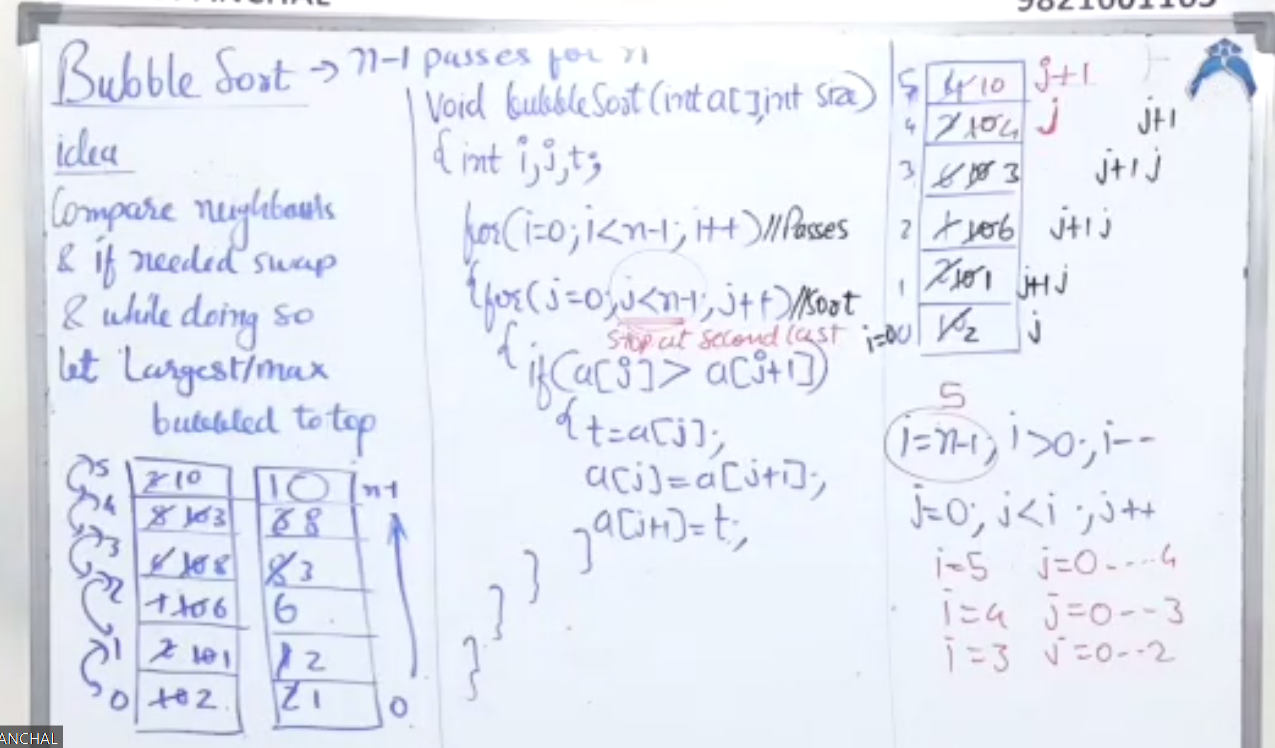 ANCHAL
9821601165
Bubble Sort → n-1 passes for n
idea
Compare neighbours
& if needed swap
& while doing so
let Largest/max
bubbled to top
5
4
3
2
1
0
2 10
8 103
6 108
1 106
2 101
10 2
10
68
83
6
12
21
n-1
0
void bubbleSort(int a[],int size)
{int i,j,t;
for(i=0;i<n-1;i++)//Passes
{for(j=0;j<n-1;j++)//sort
Stop at second last
{if(a[j]>a[j+1])
{t=a[j];
a[j]=a[j+1];
a[j+1]=t;
}
}
}
}
5 10 j+1
4 104 j j+1
3 3 j+1 j
2 106 j+1 j
1 101 j+1 j
i=0 0 2 j
5
i=n-1; i>0; i--
j=0; j<i ;j++
i=5 j=0----4
i=4 j=0--3
i=3 j=0--2
ANCHAL